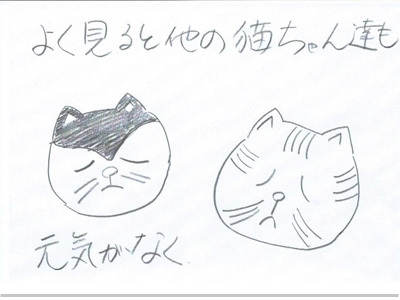 よく見ると他の猫ちゃん達も
元気がなく